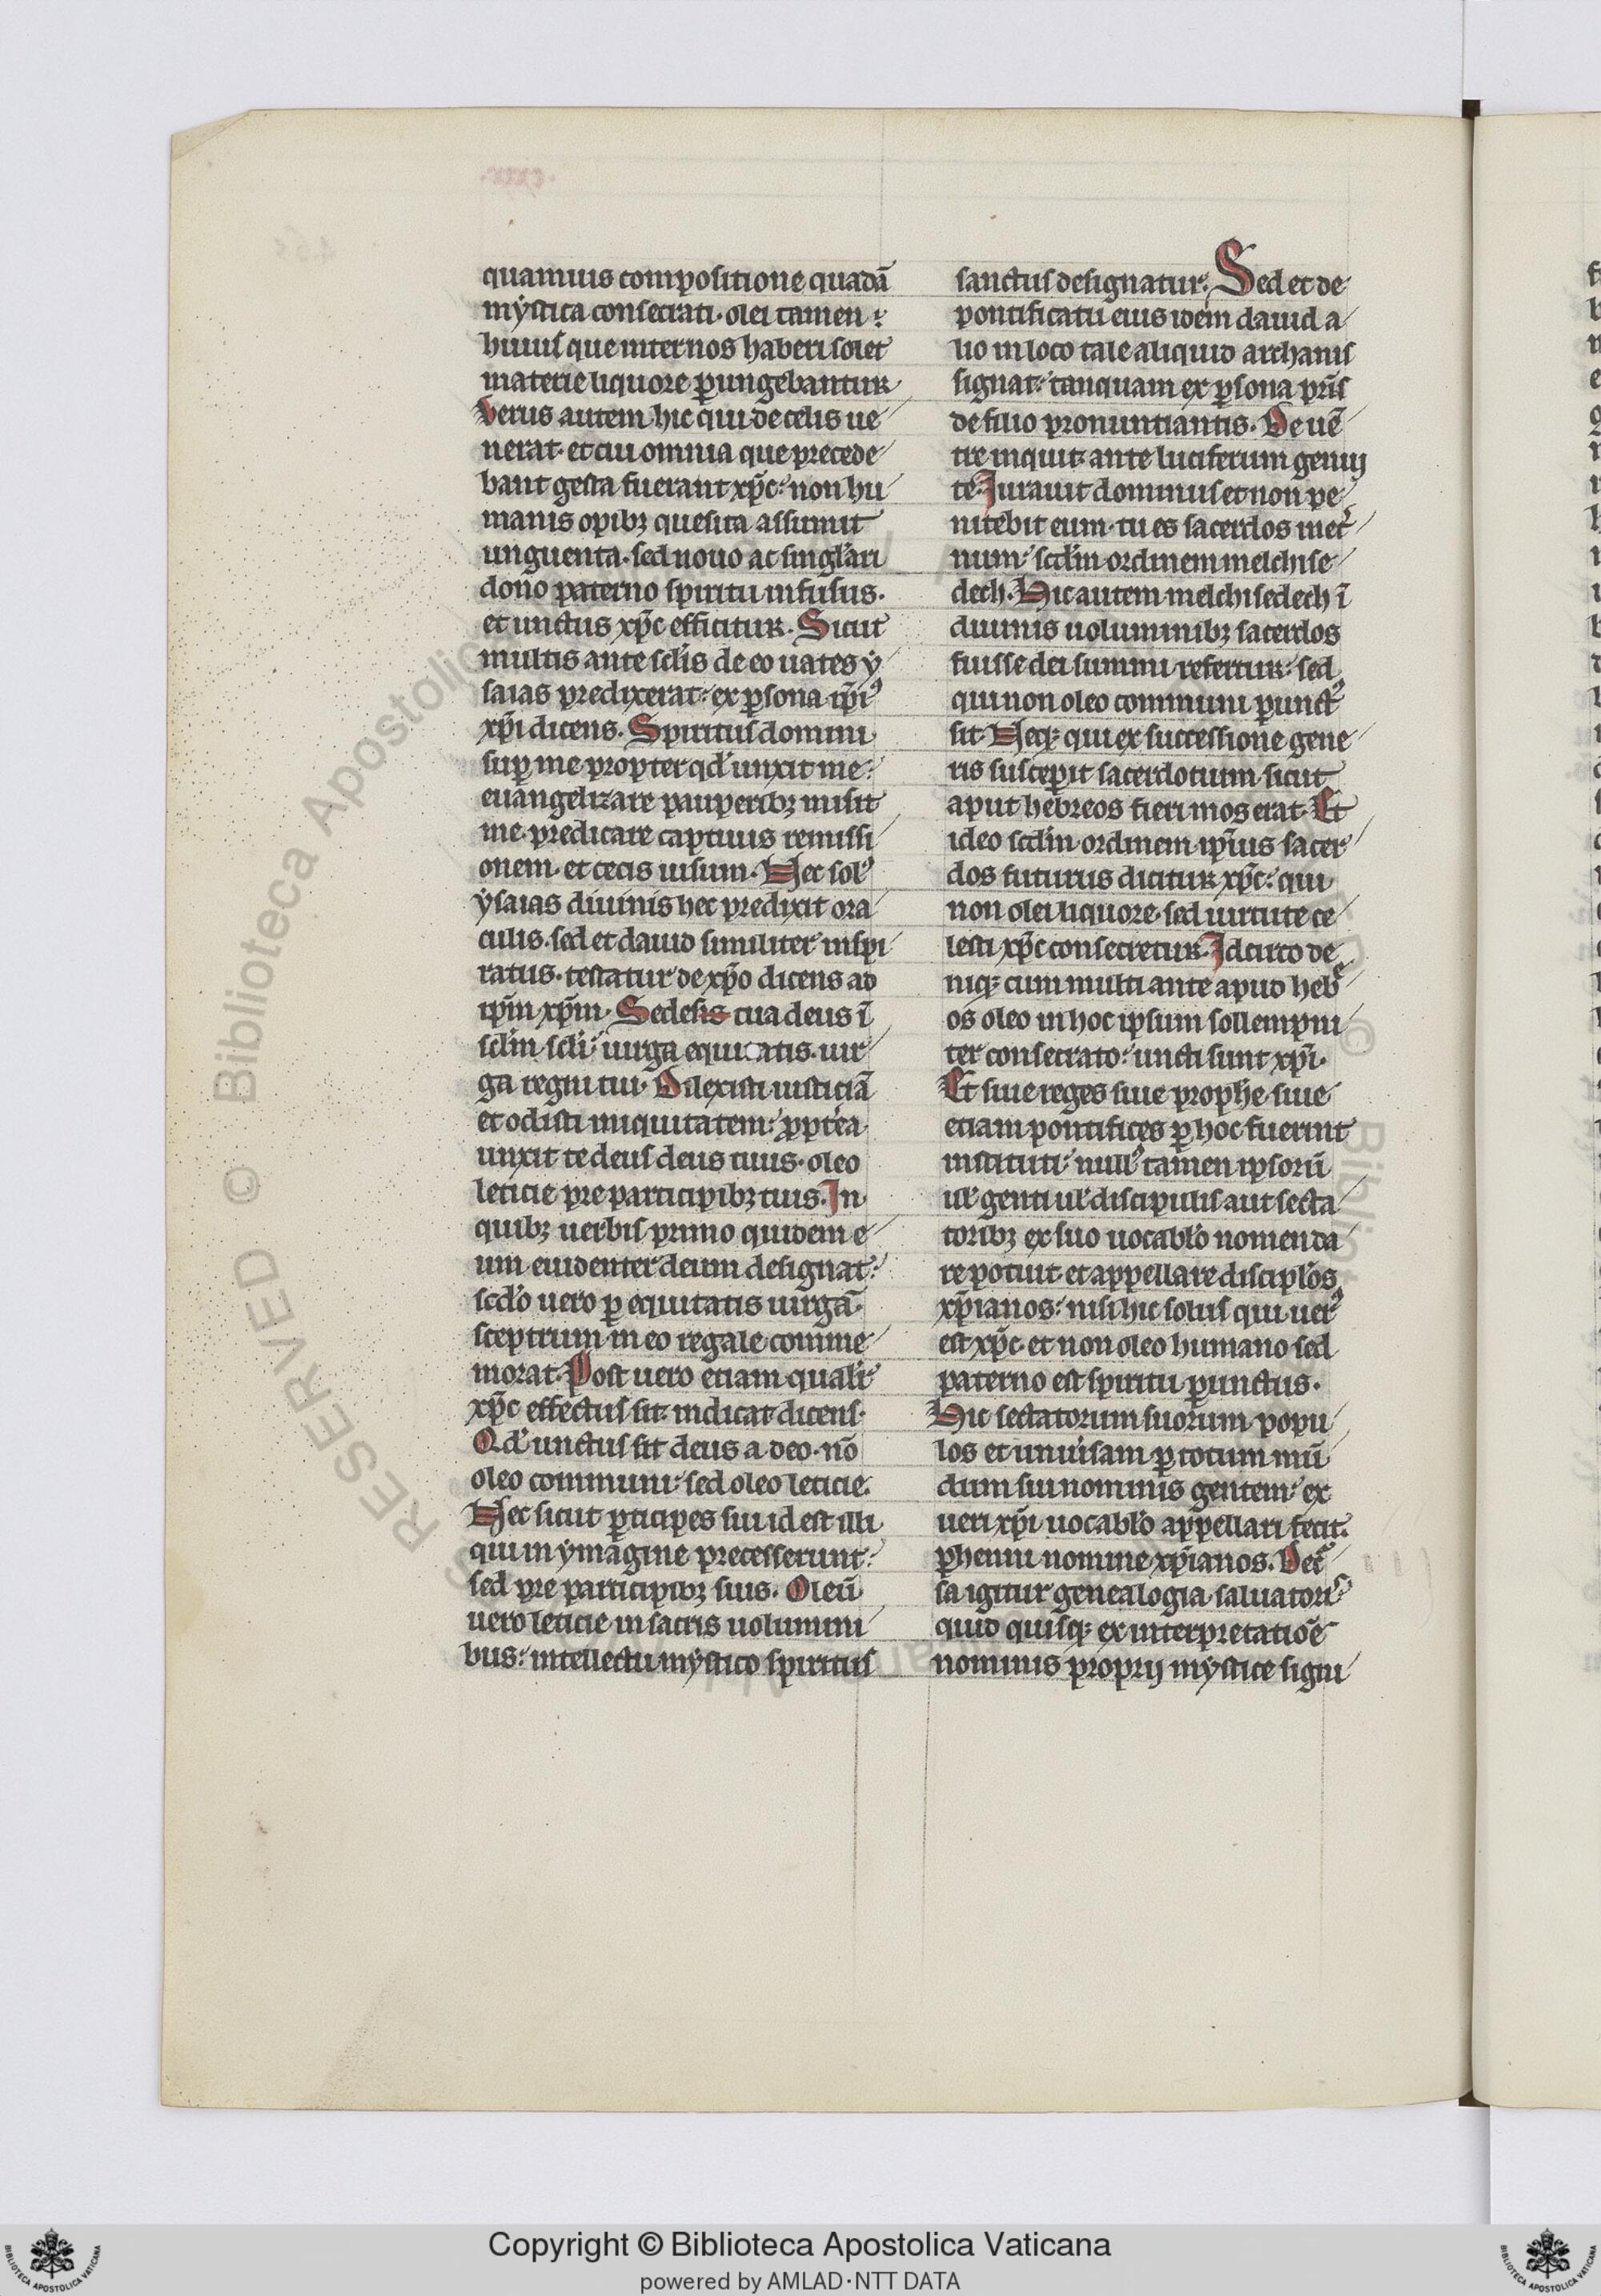 quamuis compositione quadā
mystica consecrati. olei tamen
huius que inter nos haberi solet
materie liquore ꝑungebantur
Verus autem hic qui de celis ue
nerat. et cui omnia que precede
bant gesta fuerant xp̄c. non hu
manis opibꝫ quesita assumit
unguenta. sed nouo ac singl'ari
dono paterno spiritu infusus.
et unctus xp̄c efficitur. Sicut
multis ante sclis de eo uates y
saias predixerat. ex ꝑsona ip̄iꝰ
xp̄i dicens. Spiritus domini
suꝑ me propter qd' unxit me.
euangelizare pauperibꝫ misit
me. predicare captiuis remissi
onem. et cecis uisum. Nec solꝰ
ysaias diuinis hec predixit ora
culis. sed et dauid similiter inspi
ratus. testatur de xp̄o dicens ad
ip̄m xp̄m. Sedes tua deus ī
sclm scli. uirga equitatis. uir
ga regni tui. Dilexisti iusticiā
et odisti iniquitatem. ꝓpt'ea
unxit te deus deus tuus. oleo
leticie pre participibꝫ tuis. In
quibꝫ uerbis primo quidem e
um euidenter deum designat.
scd'o uero ꝑ equitatis uirgā.
sceptrum in eo regale comme
morat. Post uero etiam qualit'
xp̄c effectus sit. indicat dicens.
Qd' unctus sit deus a deo. nō
oleo communi. sed oleo leticie.
Nec sicut ꝑticipes sui id est illi
qui in ymagine precesserunt.
sed pre participibꝫ suis. Oleū
uero leticie in sacris uolumini
bus. intellectu mystico spiritus
sanctus designatur. Sed et de
pontificatu eius idem dauid a
lio in loco tale aliquid archanis
signat. tanquam ex ꝑsona pr̄is
de filio pronuntiantis. De uē
tre inquit ante luciferum genui
te. Iurauit dominus et non pe
nitebit eum. tu es sacerdos in et'
num. scdm ordinem melchise
dech. Hic autem melchisedech ī
diuinis uoluminibꝫ sacerdos
fuisse dei summi refertur. sed
qui non oleo communi ꝑunctꝰ
sit. Neqꝫ qui ex successione gene
ris susceperit sacerdotium. sicut
aput hebreos fieri mos erat. Et
ideo scdm ordinem ip̄ius sacer
dos futurus dicitur xp̄c. qui
non olei liquore. sed uirtute ce
lesti xp̄c consecretur. Idcirco de
niqꝫ cum multi ante apud heb'
os oleo in hoc ipsum sollempni
ter consecrato. uncti sunt xp̄i.
Et siue reges siue prophe. siue
etiam pontifices ꝑ hoc fuerint
instituti. nullꝰ tamen ipsorū
ul' genti ul' discipulis aut secta
toribꝫ ex suo uocabl'o nomen da
re potuit et appellare discipl'os
xp̄ianos. nisi hic solus qui uerꝰ
est xp̄c. et non oleo humano sed
paterno est spiritu ꝑunctus.
Hic sectatorum suorum popu
los et uniu'sam ꝑ totum mū
dum sui nominis gentem. ex
ueri xp̄i uocabl'o appellari fecit.
ꝑhenni nomine xp̄ianos.
sa igitur genealogia saluatoris
quid quisqꝫ ex interpretatiōe
nominis proprij mystice signi
RESERVED © Biblioteca Apostolica
© Bibliot
Copyright © Biblioteca Apostolica Vaticana
powered by AMLAD·NTT DATA
BIBLIOTECA APOSTOLICA VATICANA
BIBLIOTECA APOSTOLICA VATICANA